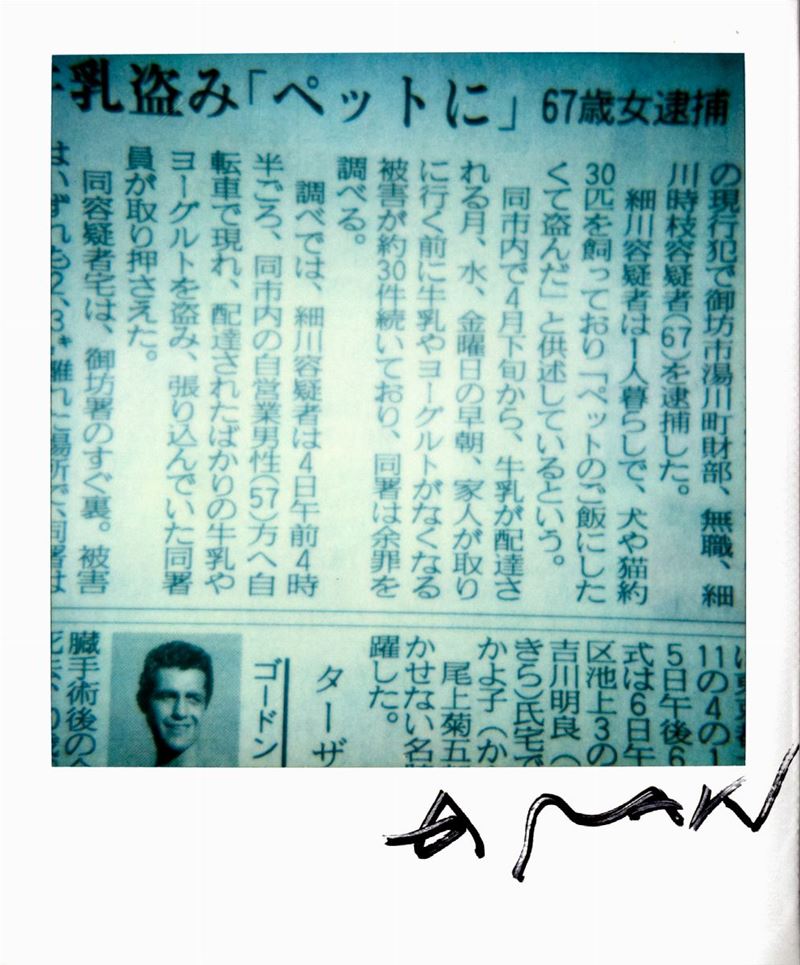 牛乳盗み「ペットに」 67歳女逮捕
の現行犯で御坊市湯川町財部、無職、細
川時枝容疑者(67)を逮捕した。
細川容疑者は1人暮らしで、犬や猫約
30匹を飼っており「ペットのご飯にした
くて盗んだ」と供述しているという。
同市内で4月下旬から、牛乳が配達さ
れる月、水、金曜日の早朝、家人が取り
に行く前に牛乳やヨーグルトがなくなる
被害が約30件続いており、同署は余罪を
調べる。
調べでは、細川容疑者は4日午前4時
半ごろ、同市内の自営業男性(57)方へ自
転車で現れ、配達されたばかりの牛乳や
ヨーグルトを盗み、張り込んでいた同署
員が取り押さえた。
同容疑者宅は、御坊署のすぐ裏。被害
はいずれも2、3㌔離れた場所で、同署は
11の4の1
5日午後6
式は6日午
区池上3の
吉川明良(
きら)氏宅で
かよ子(か
尾上菊五
かせない名
躍した。
ターザ
ゴードン
臓手術後の合
ARAKI